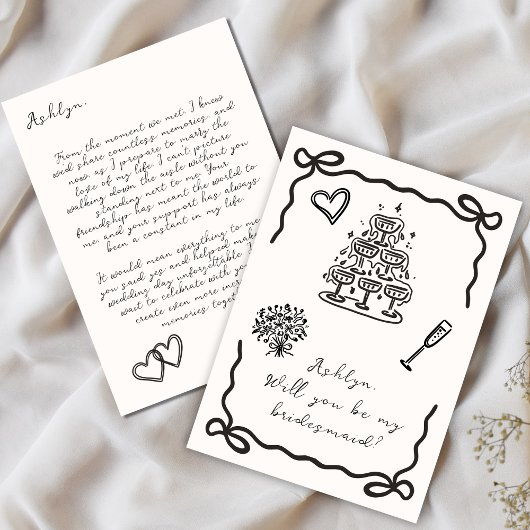 Ashlyn,
From the moment we met, I knew
we'd share countless memories, and
now as I prepare to marry the
love of my life, I can't picture
walking down the aisle without you
standing next to me. Your
friendship has meant the world to
me, and your support has always
been a constant in my life.
It would mean everything to me
you said yes and helped make
wedding day unforgettable.
wait to celebrate with you
create even more
memories
Ashlyn,
Will you be my
bridesmaid?